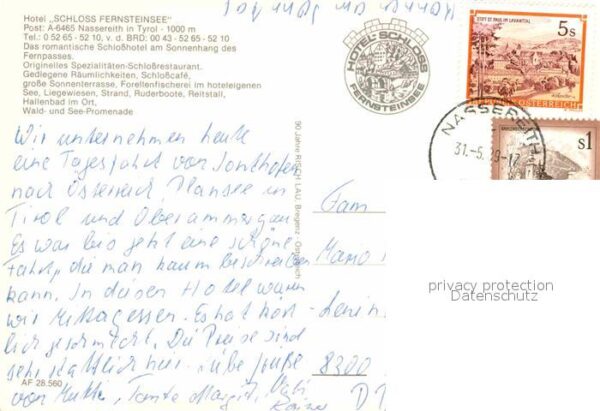 Hotel „SCHLOSS FERNSTEINSEE"
Post: A-6465 Nassereith in Tyrol - 1000 m
Tel.: 0 52 65 - 52 10, v. d. BRD: 00 43 - 52 65 - 52 10
Das romantische Schloßhotel am Sonnenhang des
Fernpasses.
Originelles Spezialitäten-Schloßrestaurant.
Gediegene Räumlichkeiten, Schloßcafé,
große Sonnenterrasse, Forellenfischerei im hoteleigenen
See, Liegewiesen, Strand, Ruderboote, Reitstall,
Hallenbad im Ort,
Wald- und See-Promenade
Wir unternehmen heute
eine Tagesfahrt von Sonthofen
nach Österreich, Plansee in
Tirol und Oberammergau
Es war bis jetzt eine schöne
Fahrt, die man kaum beschreiben
kann. In diesen Hotel waren
wir Mittagessen. Es hat köst-
lich geschmeckt. Die Preise sind
sehr stattlich hier. Liebe Grüße
von Mutti, Tante Margit,
AF 28.560
90 Jahre RISCH LAU, Bregenz - Österreich
HOTEL-SCHLOSS
FERNSTEINSEE
STIFT ST. PAUL IM LAVANTTAL
5s
REPUBLIK ÖSTERREICH
s1
NASSEREITH
31.-5.
Fam
8300
privacy protection
Datenschutz